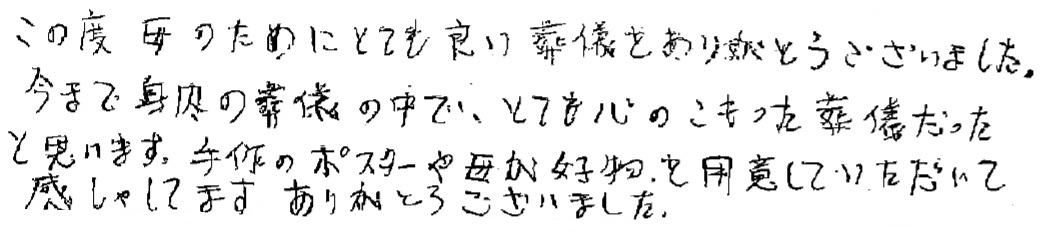 この度 母のためにとても良い葬儀をありがとうございました。
今まで身内の葬儀の中で、とても心のこもった葬儀だった
と思います。手作のポスターや母が好物を用意していただいて
感しゃしてます ありがとうございました。